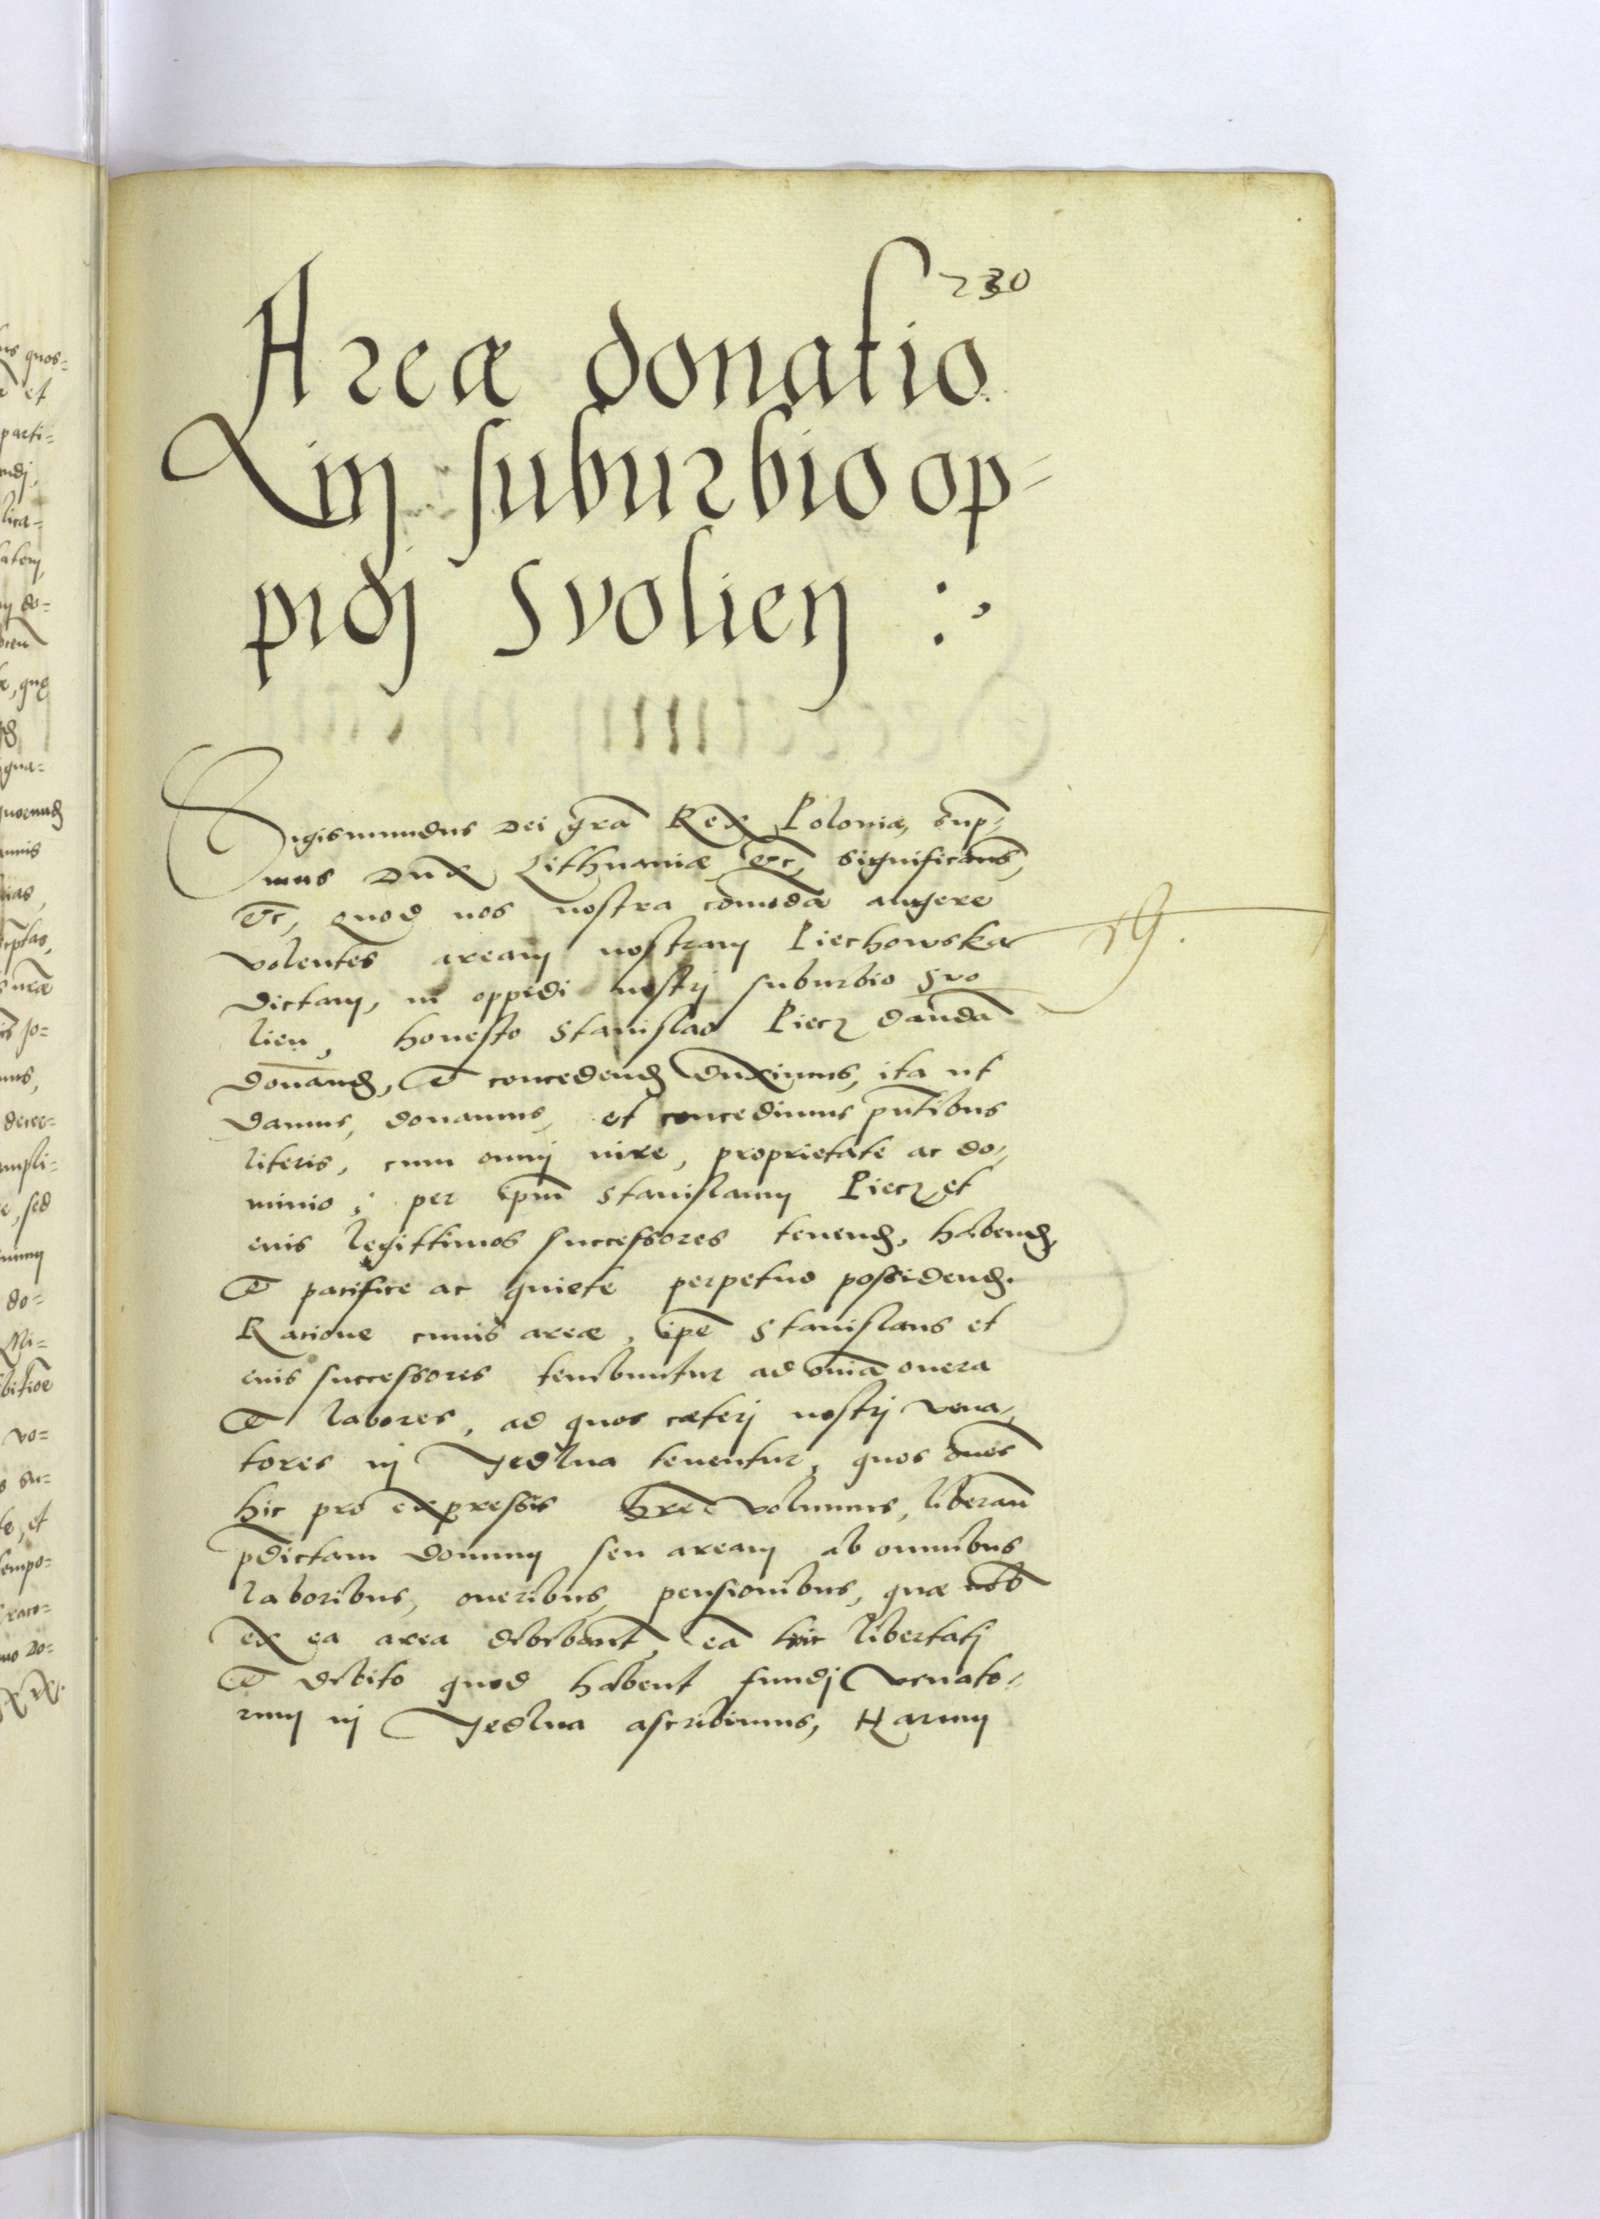 230
Areæ donatio
in suburbio op-
pidj Svolien :
Sigismundus Dei gr̃a Rex Poloniæ, sup-
mus Dux Lithuaniæ etc̃ significam̃s,
etc̃, quod nos nostra com̃oda augere
volentes aream nostram Piechowska
19.
dictam, in oppidi nostrj suburbio Svo
lien, honesto Stanislao Piecz dandã
donand, et concedend duximus, ita ut
damus, donamus, et concedimus pñtibus
literis, cum omnj iure, proprietate ac do-
minio, per ip̃m Stanislaum Piecz et
eius legittimos successores tenend, habend,
et pacifice ac quiete perpetuo possidend.
Ratione cuius areæ, ip̃e Stanislaus et
eius successores tenebuntur ad om̃ia onera
et labores, ad quos cæterj nostrj vena-
tores in Jedlna tenentur, quos om̃es
hic pro expressis h̃re volumus, liberam̃
p̃dictam domum seu aream ab omnibus
laboribus, oneribus, pensionibus, quæ nob̃
ex ea area debebant, eã hic libertatj
et debito quod habent fundj venato-
rum in Jedlna ascribimus, Harum